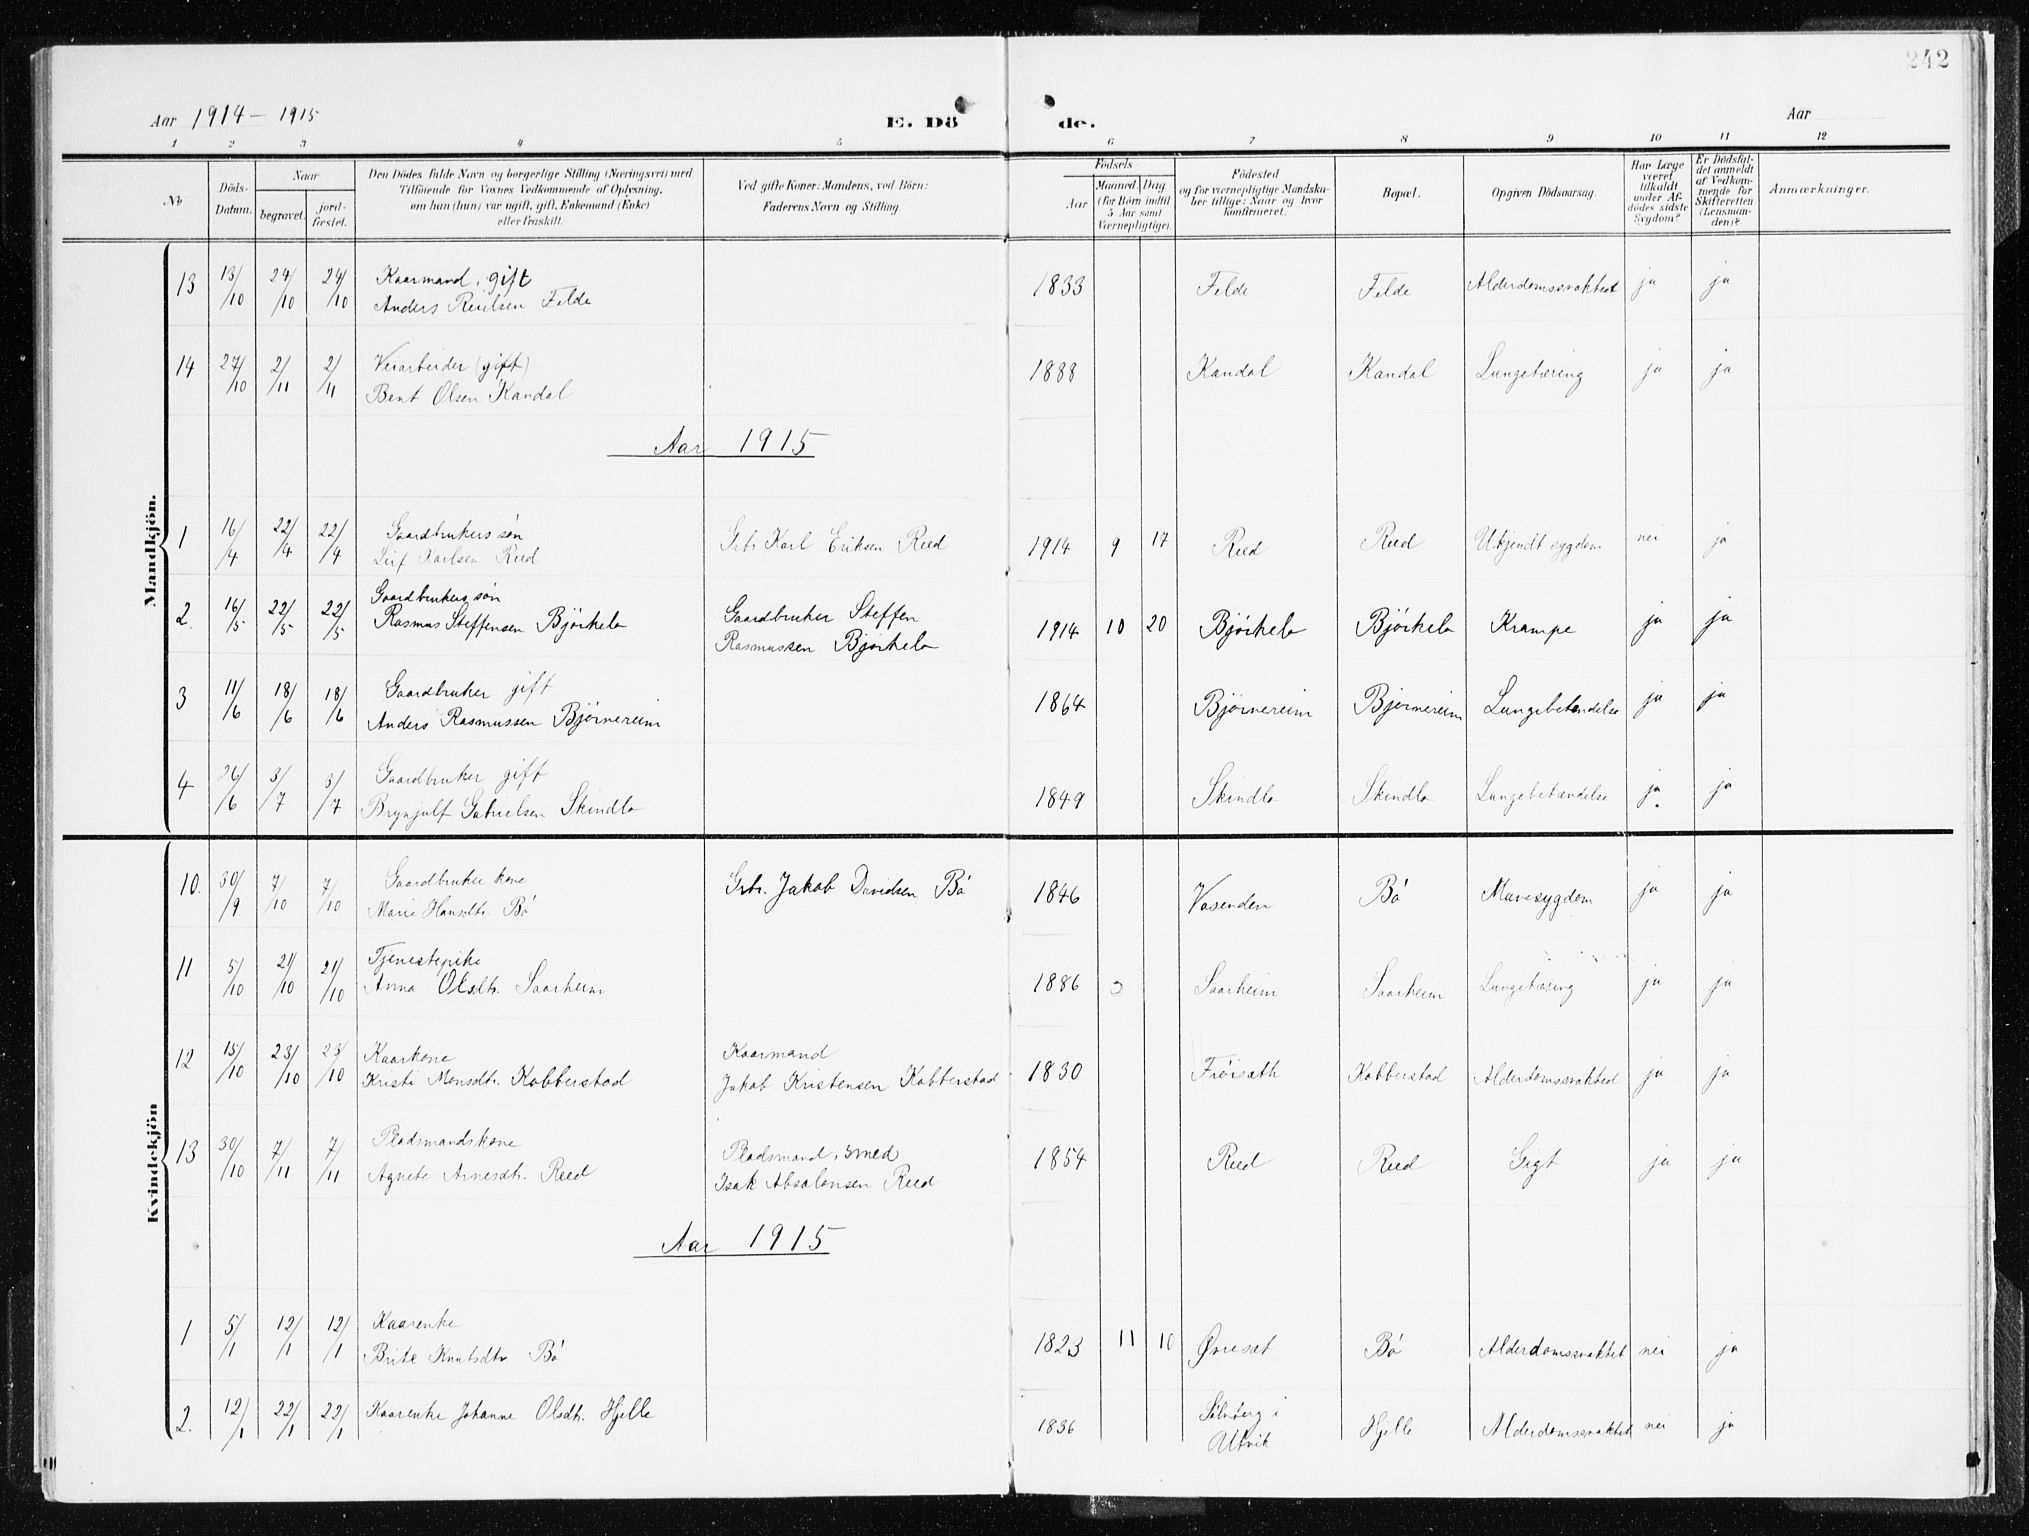 242
Aar 1914 - 1915 E. Dö de. Aar
1 2 3 4 5 6 7 8 9 10 11 12
No
Döds-Datum.
Naar
begravet. jordfæstet.
Den Dödes fulde Navn og borgerlige Stilling (Næringsvei) med
Tilföiende for Voxnes Vedkommende af Oplysning,
om han (hun) var ugift, gift, Enkemand (Enke)
eller fraskilt.
Ved gifte Koner: Mandens, ved Börn:
Faderens Navn og Stilling.
Födsels-
Aar
Maaned. Dag
(for Börn indtil
5 Aar samt
Værnepligtige).
Födested
og for værnepligtige Mandska-
ber tillige: Naar og hvor
konfirmeret.
Bopæl.
Opgiven Dödsaarsag.
Har Læge
været
tilkaldt
under Af-
dödes sidste
Sygdom?
Er Dödsfal-
det anmeldt
af Vedkom-
mende for
Skifteretten
(Lensman-
den)?
Anmærkninger.
Mandkjön.
13 13/10 24/10 24/10 Kaarmand, gift 1833 Felde Felde Alderdomssvakhed ja ja
Anders Felde
14 27/10 2/11 2/11 Veiarbeider (gift) 1888 Kandal Kandal Lungetæring ja ja
Bent Olsen Kandal
Aar 1915
1 16/4 22/4 22/4 Gaardbrukers søn Grbr. Karl Eriksen Reed 1914 9 17 Reed Reed Ukjendt sygdom nei ja
Leif Karlsen Reed
2. 16/5 22/5 22/5 Gaardbrukers søn Gaardbruker Steffen 1914 10 20 Bjørkelo Bjørkelo Krampe ja ja
Rasmus Steffensen Bjørkelo Rasmussen Bjørkelo
3 11/6 18/6 18/6 Gaardbruker gift 1864 Bjørnereim Bjørnereim Lungebetendelse ja ja
Anders Rasmussen Bjørnereim
4 26/6 3/7 3/7 Gaardbruker gift 1849 Skindlo Skindlo Lungebetændelse ja ja
Brynjulf Gabrielsen Skindlo
Kvindekjön
10. 30/9 7/10 7/10 Gaardbruker kone Grbr. Jakob Davidsen Bø 1846 Vasenden Bø Mavesygdom ja ja
Marie Hansdtr. Bø
11 5/10 21/10 21/10 Tjenestepike 1886 Saarheim Saarheim Lungetæring ja ja
Anna Olsdtr. Saarheim
12 15/10 23/10 23/10 Kaarkone Kaarmand 1830 Frøisath Kobberstad Alderdomssvakhed ja ja
Kristi Monsdtr. Kobberstad Jakob Kristensen Kobberstad
13 30/10 7/11 7/11 Pladsmandskone Pladsmand, smed 1854 Reed Reed Gigt ja ja
Agnete Arnesdtr. Reed Isak Absalonsen Reed
Aar 1915
1 5/1 12/1 12/1 Kaarenke 1823 11 10 Bø Alderdomssvakhet nei ja
Brite Knutsdtr Bø
2. 12/1 22/1 22/1 Kaarenke Johanne Olsdtr. Hjelle 1836 Sølvberg i Hjelle Alderdomssvakhet nei ja
Utvik